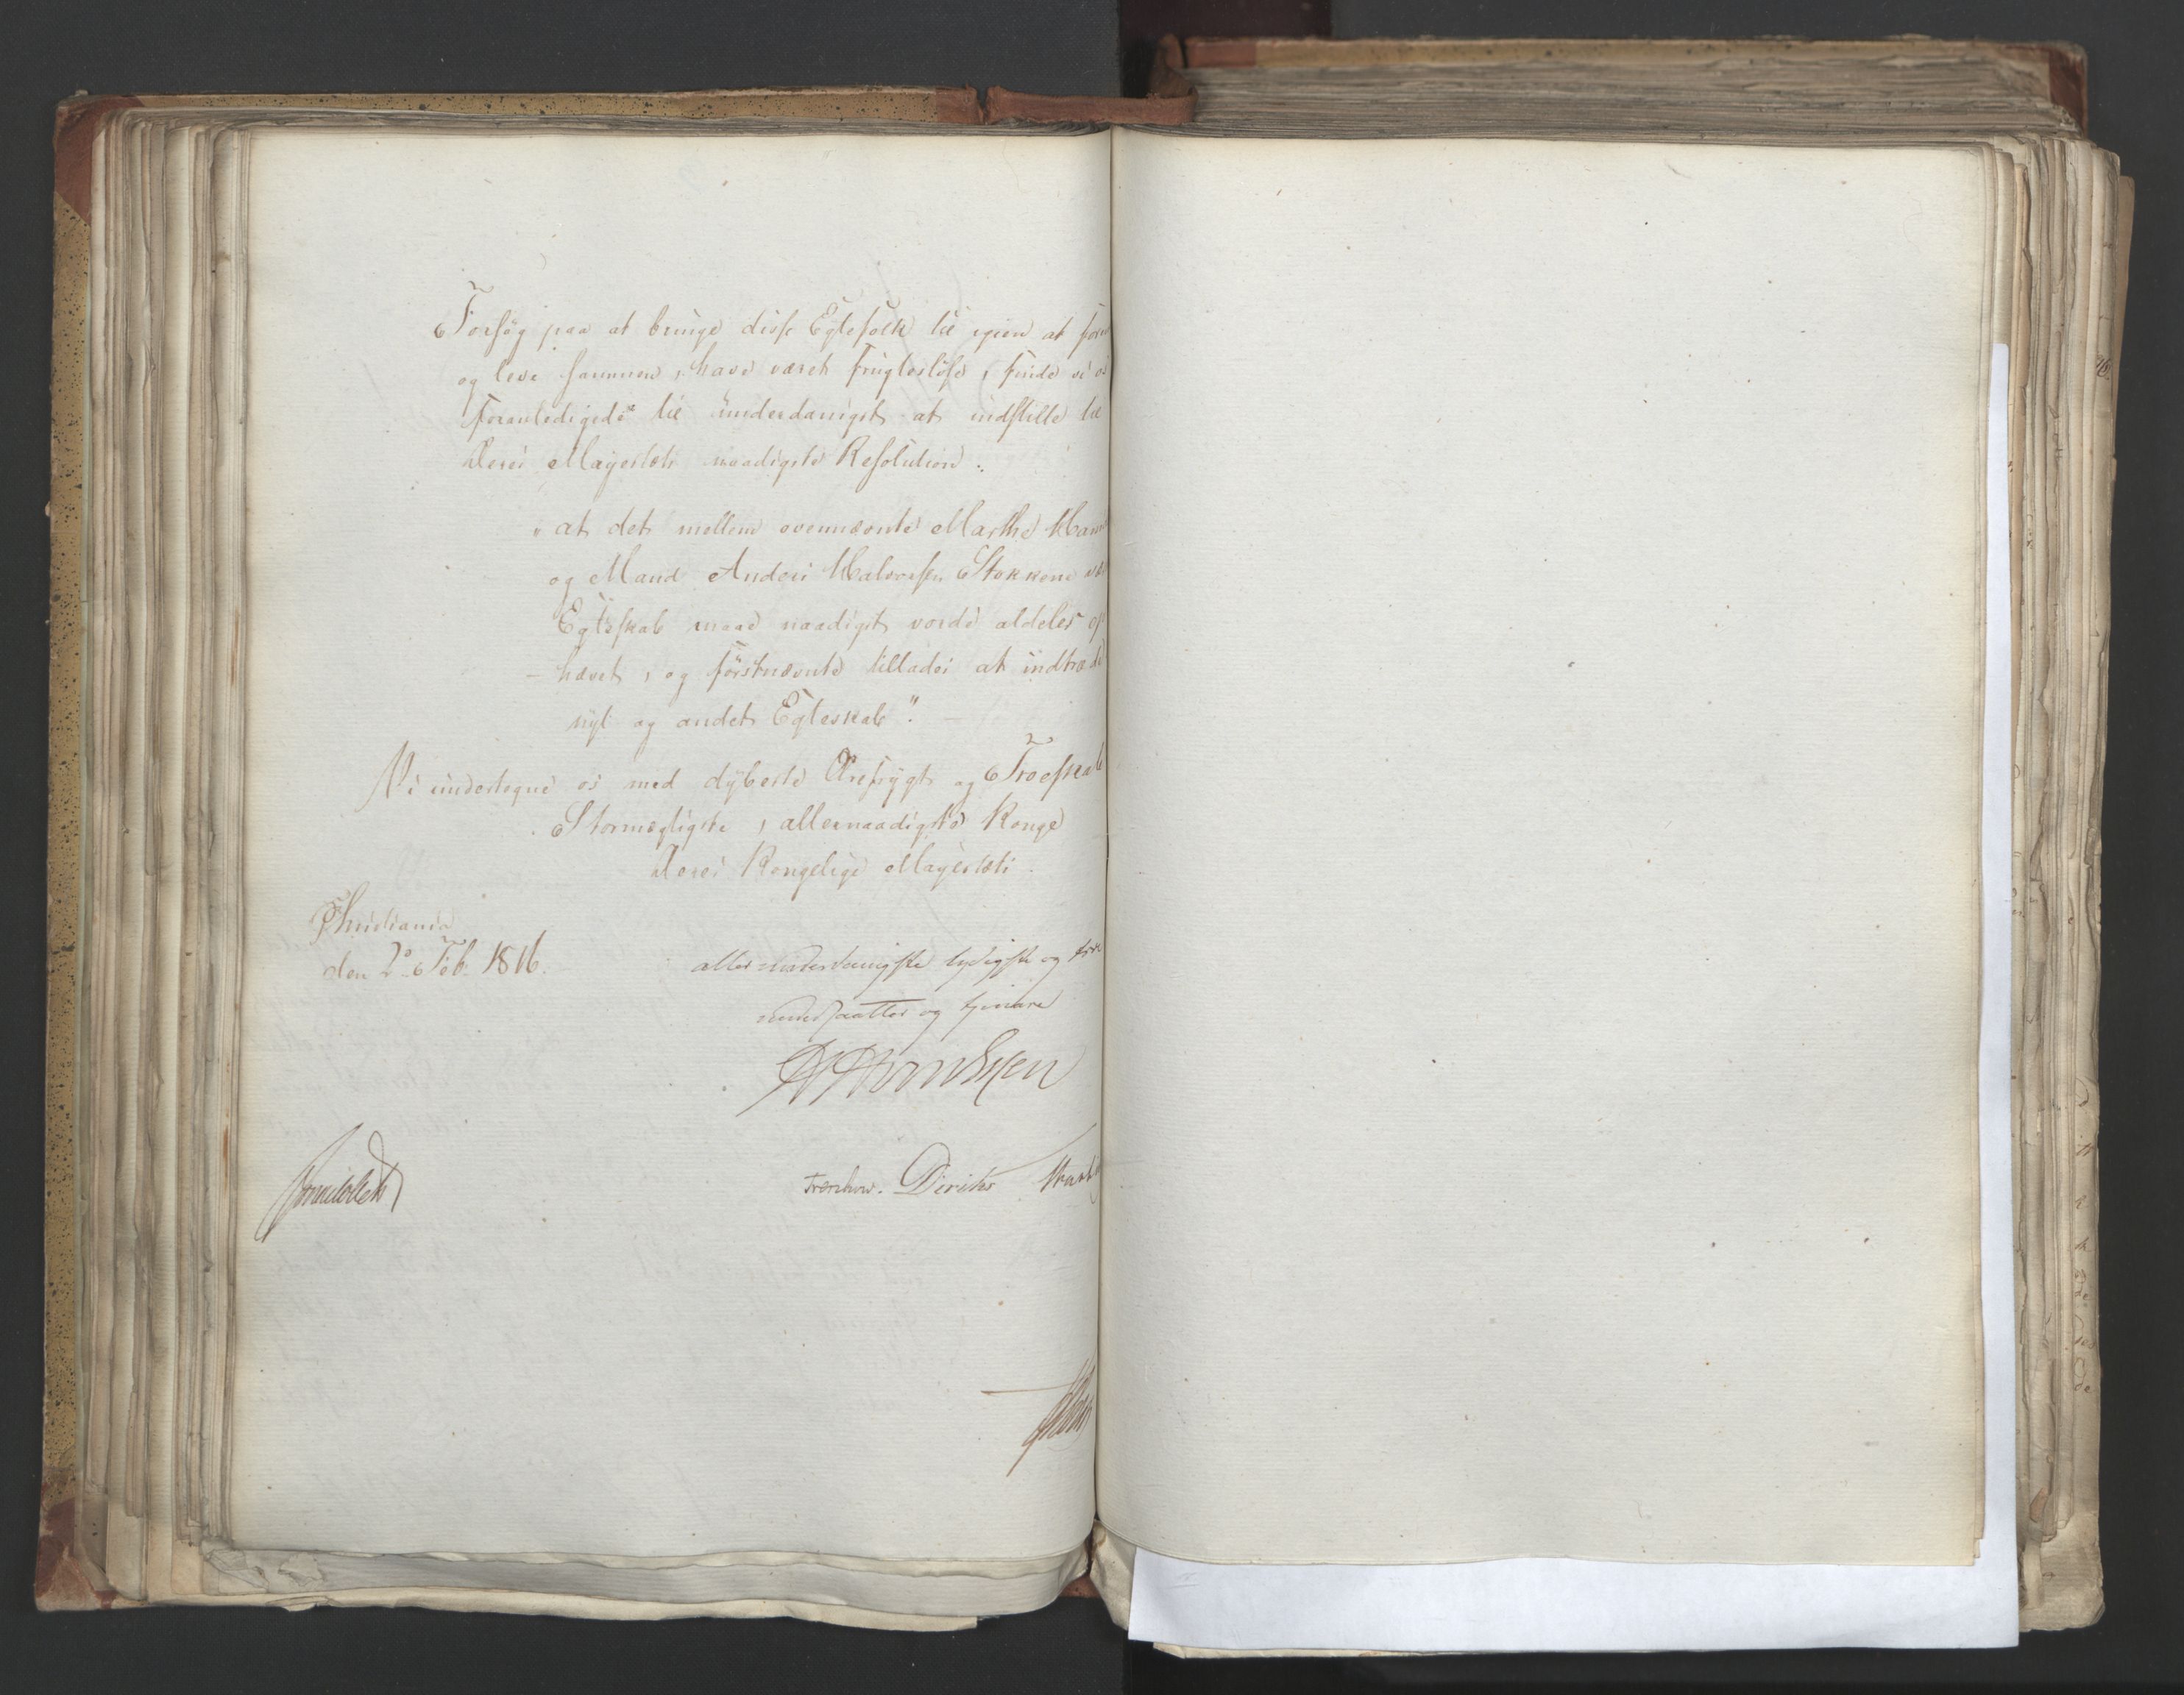 Forsøg paa at bringe disse Egtefolk til igien at
og leve sammen, have været frugtesløse, finde vi
foranledigede til underdanigst at indstille til
Deres Majestæts naadigste Resolution:
"at det mellem ovennævnte Marthe
og Mand Anders Halvorsen Stokkene
Egteskab maae naadigst vorde aldeles op
-hævet, og førstnævnte tillades at indtræde
nyt og andet Egteskab".
Vi undertegne os med dybeste Ærefrygt og Troeskab
Stormægtigste, allernaadigste Konge
Deres Kongelige Majestæts
Christiania
den 2de Feb. 1816.
allerunderdanigste lydigste og troe
undersaatter og tjenere
Sommerfeldt
Treschow. Diriks